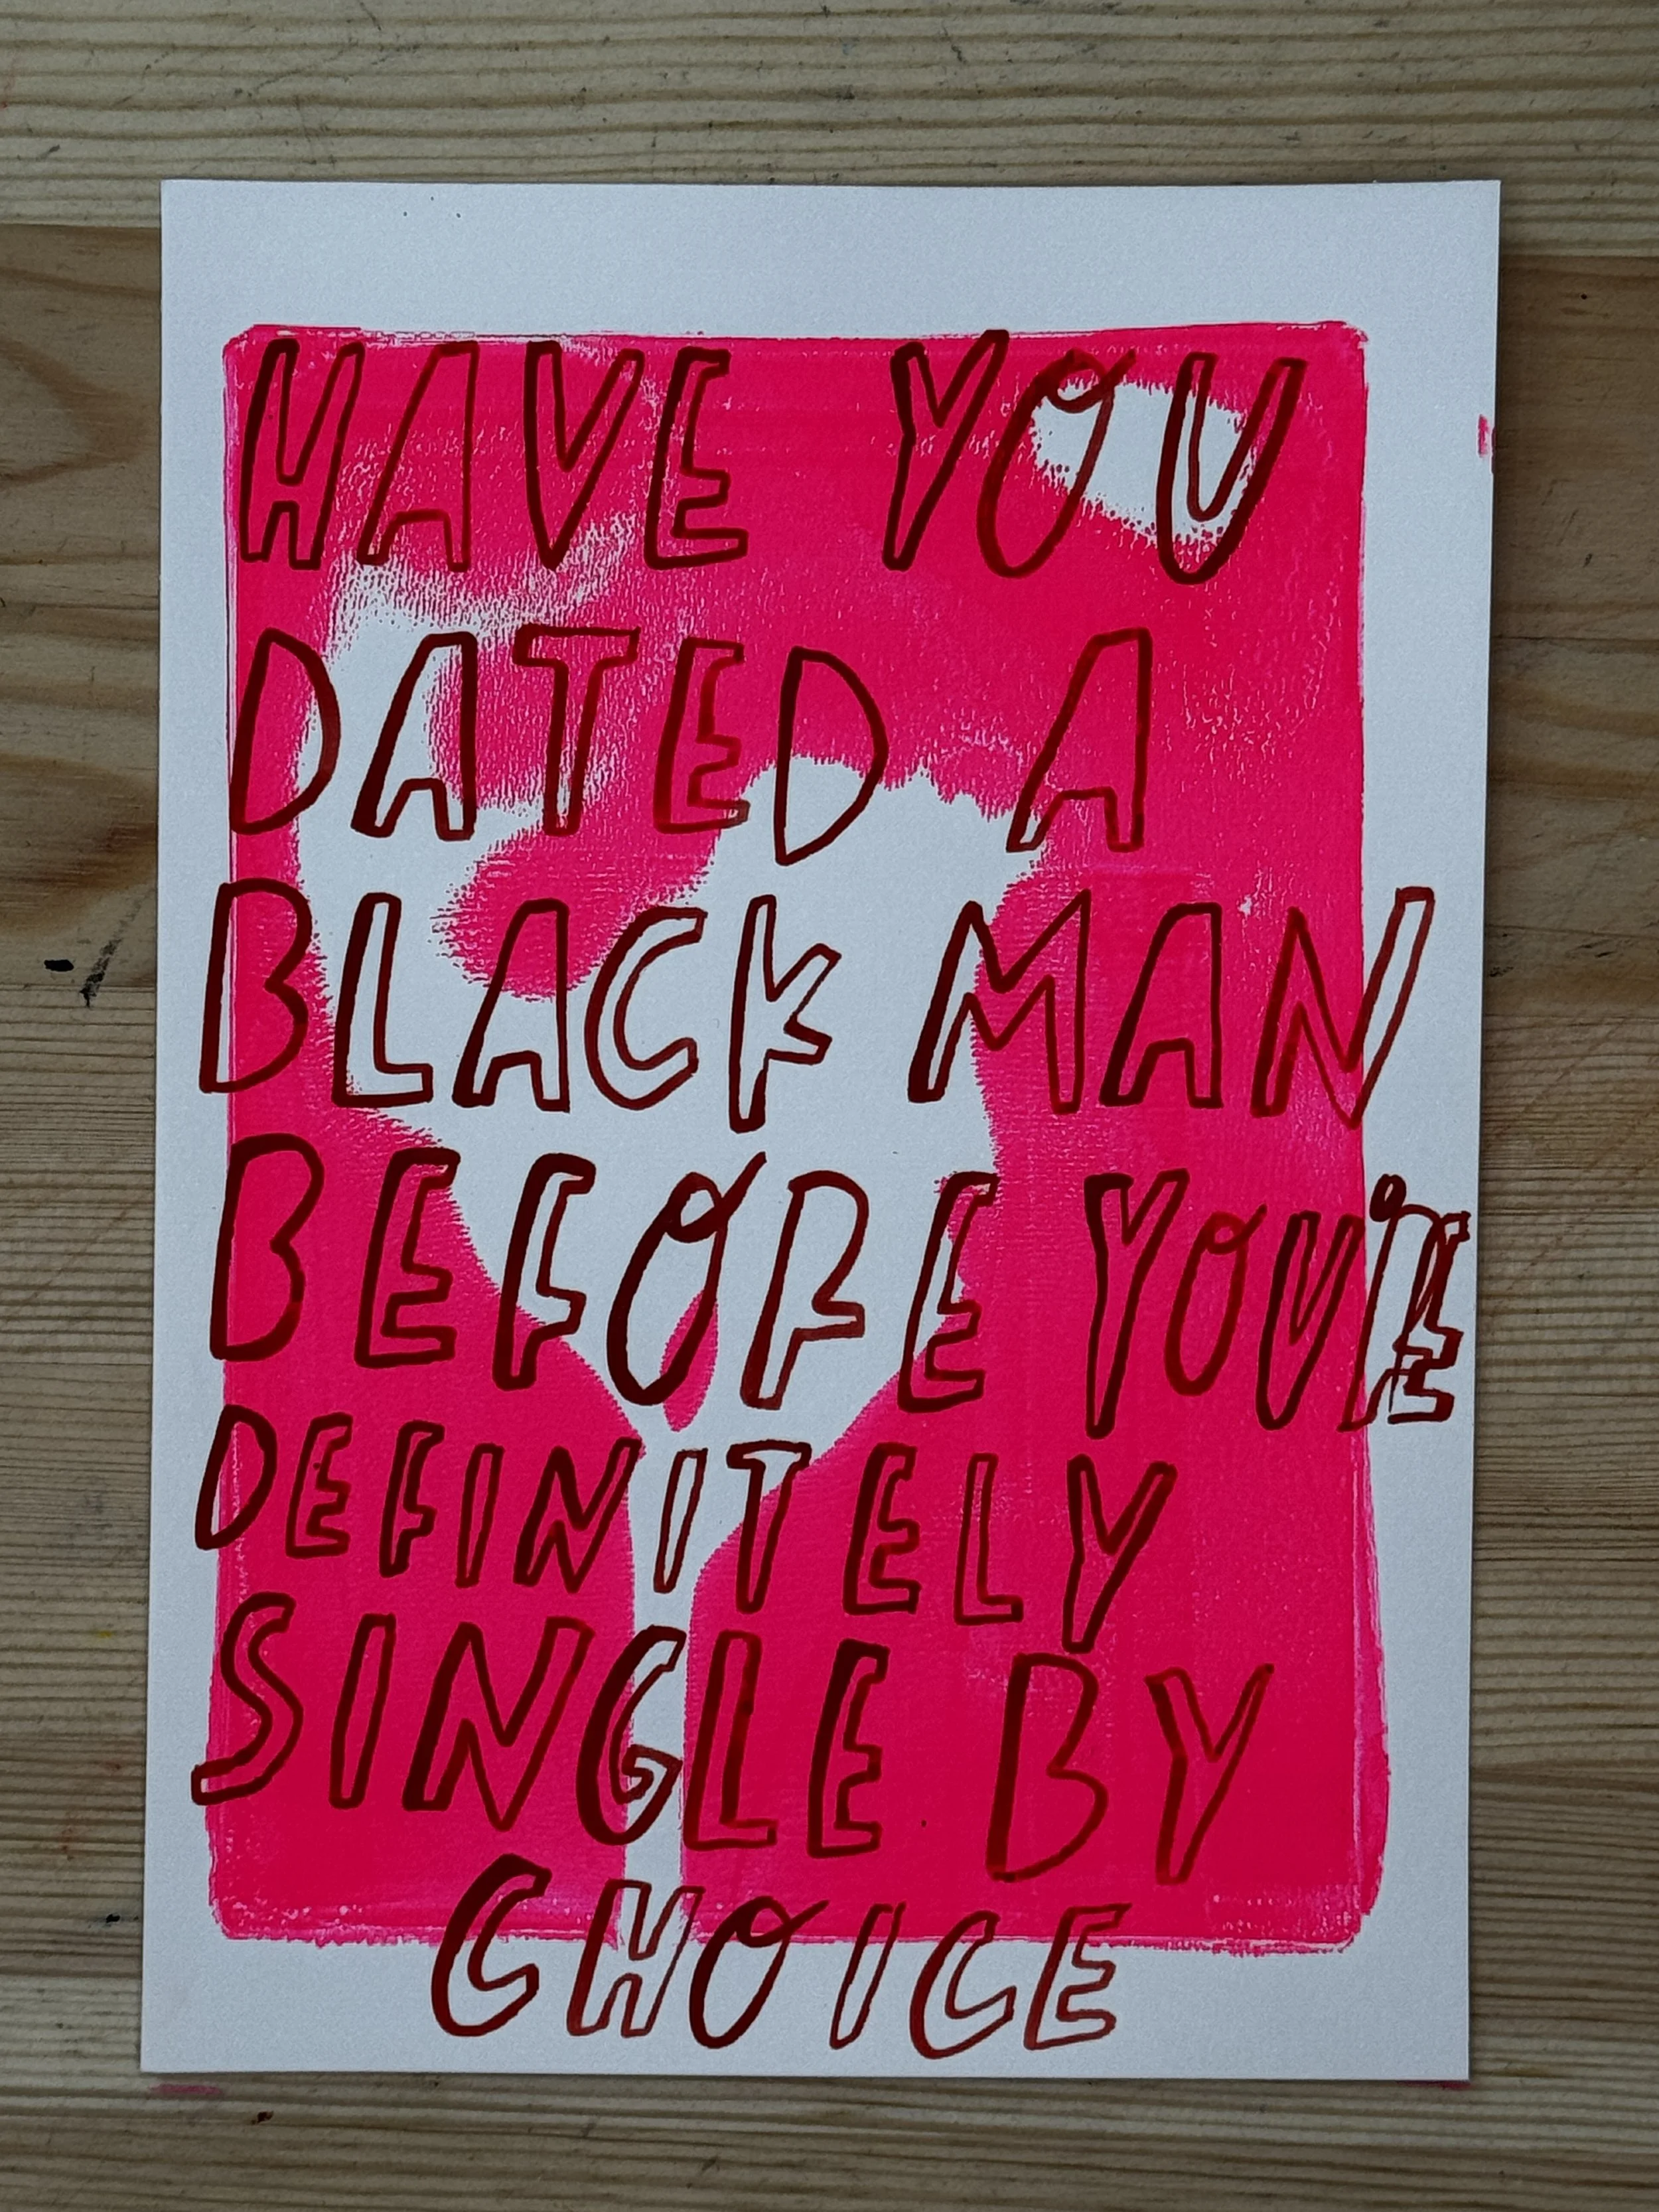 HAVE YOU
DATED A
BLACK MAN
BEFORE YOU'RE
DEFINITELY
SINGLE BY
CHOICE